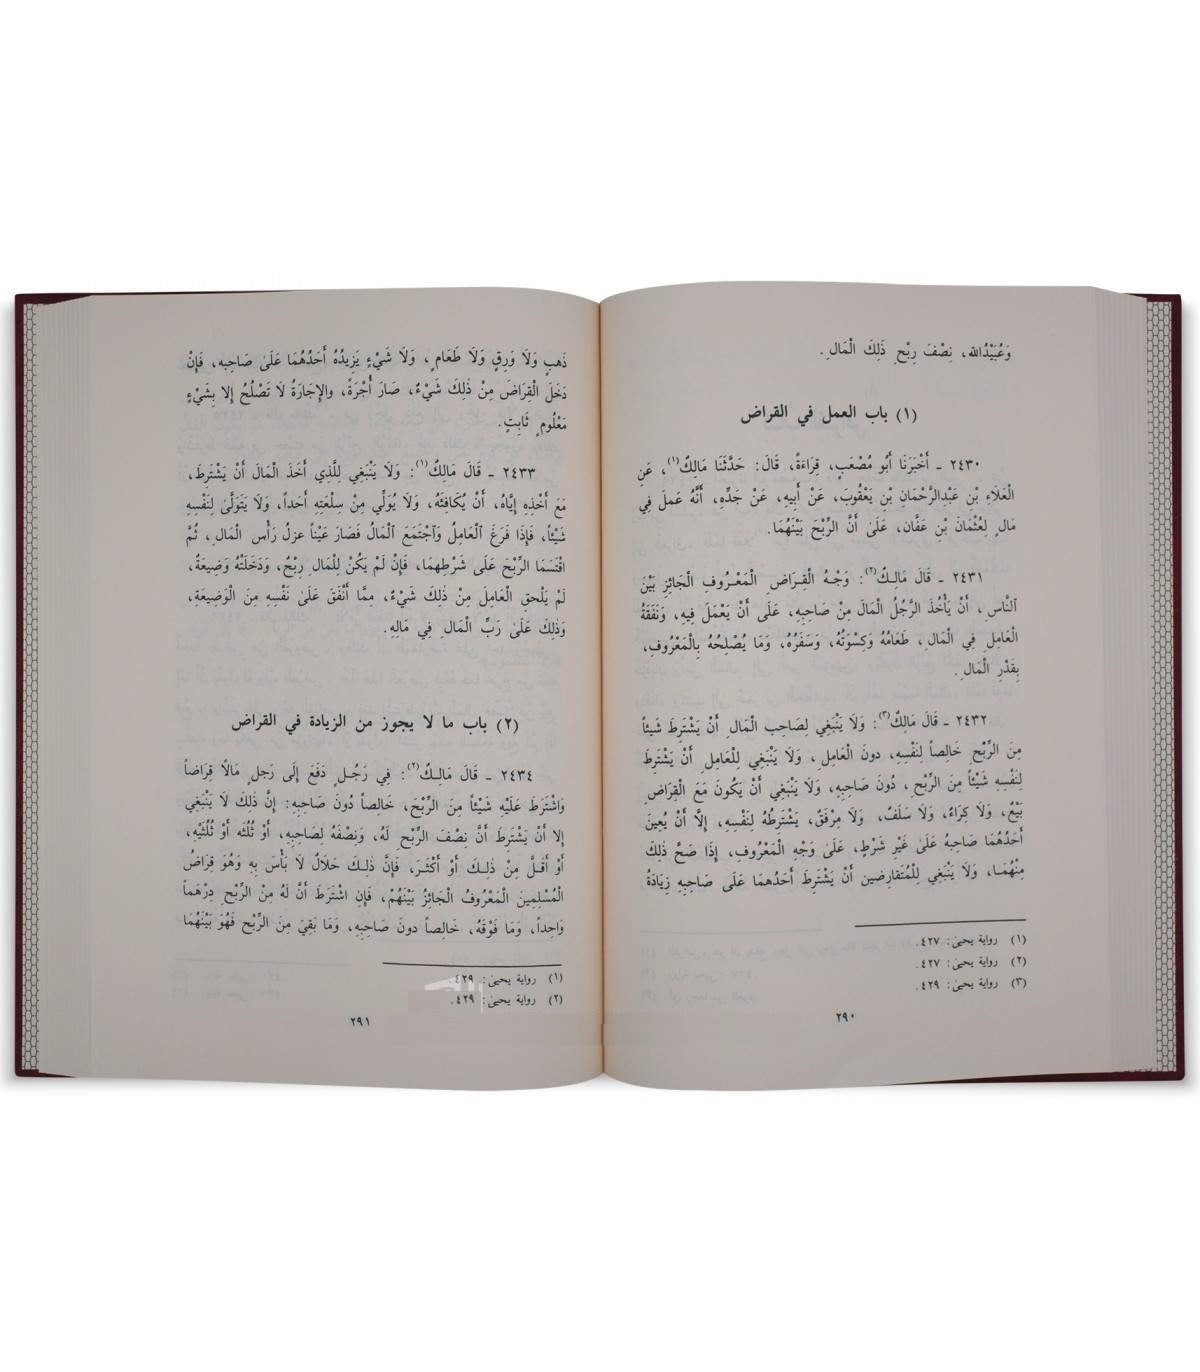 وَعُبَيْدُالله، نِصْفَ رِبْحِ ذَلِكَ الْمَالِ.
(١) باب العمل في القراض
٢٤٣٠ ـ أَخْبَرَنَا أَبُو مُصْعَبٍ، قِرَاءَةً، قَالَ: حَدَّثَنَا مَالِكٌ(١)، عَنِ
الْعَلَاءِ بْنِ عَبْدِالرَّحْمَانِ بْنِ يَعْقُوبَ، عَنْ أَبِيهِ، عَنْ جَدِّهِ، أَنَّهُ عَمَلَ فِي
مَالٍ لِعُثْمَانَ بْنِ عَفَّان، عَلَىٰ أَنَّ الرِّبْحَ بَيْنَهُمَا.
٢٤٣١ ـ قَالَ مَالِكٌ(٢): وَجْهُ الْقِرَاضِ الْمَعْرُوفِ الْجَائِزِ بَيْنَ
النَّاسِ، أَنْ يَأْخُذَ الرَّجُلُ الْمَالَ مِنْ صَاحِبِهِ، عَلَى أَنْ يَعْمَلَ فِيهِ، وَنَفَقَةُ
الْعَامِلِ فِي الْمَالِ، طَعَامُهُ وَكِسْوَتُهُ، وَسَفَرُهُ، وَمَا يُصْلِحُهُ بِالْمَعْرُوفِ،
بِقَدْرِ الْمَالِ.
٢٤٣٢ ـ قَالَ مَالِكٌ(٣): وَلَا يَنْبَغِي لِصَاحِبِ الْمَالِ أَنْ يَشْتَرِطَ شَيئاً
مِنَ الرِّبْحِ خَالِصاً لِنَفْسِهِ، دونَ الْعَامِلِ، وَلَا يَنْبَغِي لِلْعَامِلِ أَنْ يَشْتَرِطَ
لِنَفْسِهِ شَيْئاً مِنَ الرِّبْحِ، دُونَ صَاحِبِهِ، وَلَا يَنْبَغِي أَنْ يَكُونَ مَعَ الْقِرَاضِ
بَيْعٌ، وَلَا كِرَاءٌ، وَلَا سَلَفٌ، وَلَا مِرْفَقٌ، يَشْتَرِطُهُ لِنَفْسِهِ، إِلَّا أَنْ يُعِينَ
أَحَدُهُمَا صَاحِبهُ عَلَىٰ غَيْرِ شَرْطٍ، عَلَىٰ وَجْهِ الْمَعْرُوفِ، إِذَا صَحَّ ذَلِكَ
مِنْهُمَا، وَلَا يَنْبَغِي لِلْمُتَقارِضين أَنْ يَشْتَرِطَ أَحَدُهما عَلَى صَاحِبِهِ زِيَادَةُ
(١) رواية يحيىٰ: ٤٢٧.
(٢) رواية يحيىٰ: ٤٢٧.
(٣) رواية يحيىٰ: ٤٢٩.
٢٩٠
ذَهبٍ وَلَا وَرِقٍ وَلَا طَعَامٍ، وَلَا شَيْءٍ يَزِيدُهُ أَحَدُهُمَا عَلَىٰ صَاحِبه، فَإِنْ
دَخَلَ الْقِرَاضَ مِنْ ذَلِكَ شَيْءٌ، صَارَ أُجْرَةً، والإِجَارَةُ لَا تَصْلُحُ إلا بِشَيْءٍ
مَعْلُومٍ ثَابِتٍ.
٢٤٣٣ ـ قَالَ مَالِكٌ(١): وَلَا يَنْبَغِي لِلَّذِي أَخَذَ الْمَالَ أَنْ يَشْتَرِطَ،
مَعَ أَخْذِهِ إِيَّاهُ، أَنْ يُكَافِئَهُ، وَلَا يُوَلِّي مِنْ سِلْعَتِهِ أَحَداً، وَلَا يَتَوَلَّىٰ لِنَفْسِهِ
شَيْئاً، فَإِذَا فَرَغَ الْعَامِلُ وَاجْتَمَعَ الْمَالُ فَصَارَ عَيْناً عزلُ رَأْسِ الْمَالِ، ثُمَّ
اقْتَسَمَا الرِّبْحَ عَلَى شَرْطِهِمَا، فَإِنْ لَمْ يَكُنْ لِلْمَالِ رِبْحٌ، وَدَخَلَتْهُ وَضِيعَةٌ،
لَمْ يَلْحقِ الْعَامِلَ مِنْ ذَلِكَ شَيْءٌ، مِمَّا أَنْفَقَ عَلَىٰ نَفْسِهِ مِنَ الْوَضِيعَةِ،
وَذَلِكَ عَلَىٰ رَبِّ الْمَالِ فِي مَالِهِ.
(٢) باب ما لا يجوز من الزيادة في القراض
٢٤٣٤ ـ قَالَ مَالِكٌ(٢): فِي رَجُلٍ دَفَعَ إِلَى رَجلٍ مَالاً قِرَاضاً
وَاشْتَرَطَ عَلَيْهِ شَيْئاً مِنَ الرِّبْحِ، خَالِصاً دُونَ صَاحِبِهِ: إِنَّ ذَلِكَ لَا يَنْبَغِي
إِلا أَنْ يَشْتَرِطَ أَنَّ نِصْفَ الرِّبْحِ لَهُ، وَنِصْفَهُ لِصَاحِبِهِ، أَوْ ثُلُثَه أَوْ ثُلُثَيْهِ،
أَوْ أَقَلَّ مِنْ ذَلِكَ أَوْ أَكْثَرَ، فَإِنَّ ذَلِكَ حَلَالٌ لَا بَأْسَ بِهِ وَهُوَ قِرَاضُ
الْمُسْلِمِينَ الْمَعْرُوفُ الْجَائِزُ بَيْنَهُمْ، فَإِنِ اشْتَرَطَ أَنَّ لَهُ مِنَ الرِّبْحِ دِرْهَماً
وَاحِداً، وَمَا فَوْقَهُ، خَالِصاً دونَ صَاحِبِهِ، وَمَا بَقِيَ مِنَ الرِّبْحِ فَهُوَ بَيْنَهُمَا
(١) رواية يحيىٰ: ٤٢٩.
(٢) رواية يحيىٰ: ٤٢٩.
٢٩١